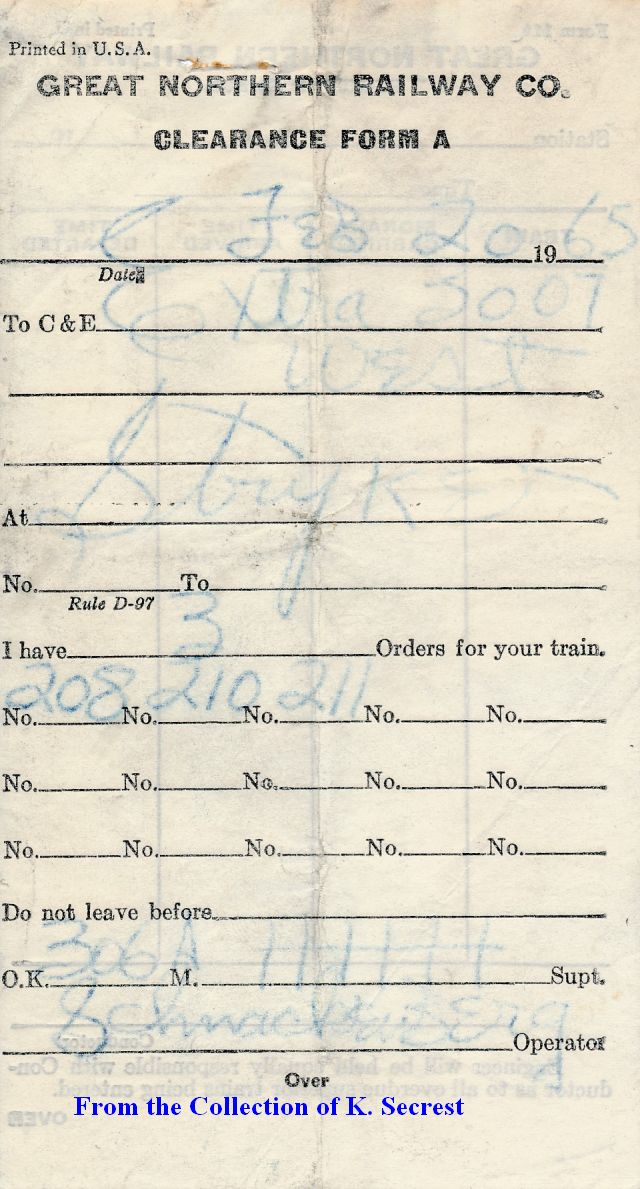 Printed in U.S.A.
GREAT NORTHERN RAILWAY CO.
CLEARANCE FORM A
Feb 20 1965
Date
To C & E Extra 3007
West
At Stryker
No. To
Rule D-97
I have 3 Orders for your train.
208 210 211
No. No. No. No. No.
No. No. No. No. No.
No. No. No. No. No.
Do not leave before
O.K. 306 A M. Supt.
Operator
Over
From the Collection of K. Secrest